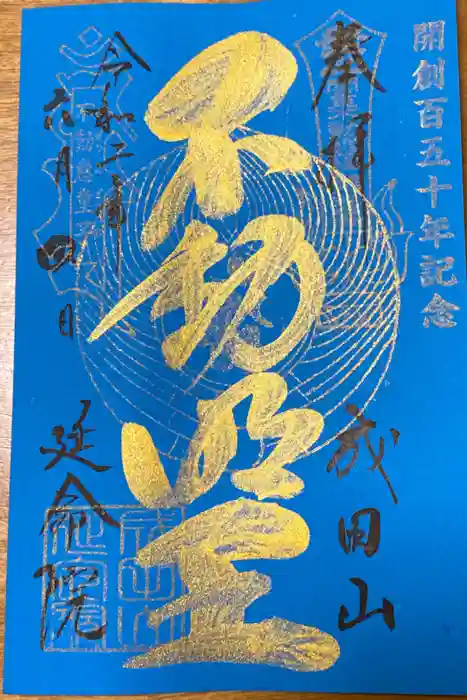 開創百五十年記念
奉拝
成田山
不動明王
令和二年
六月四日
延命院